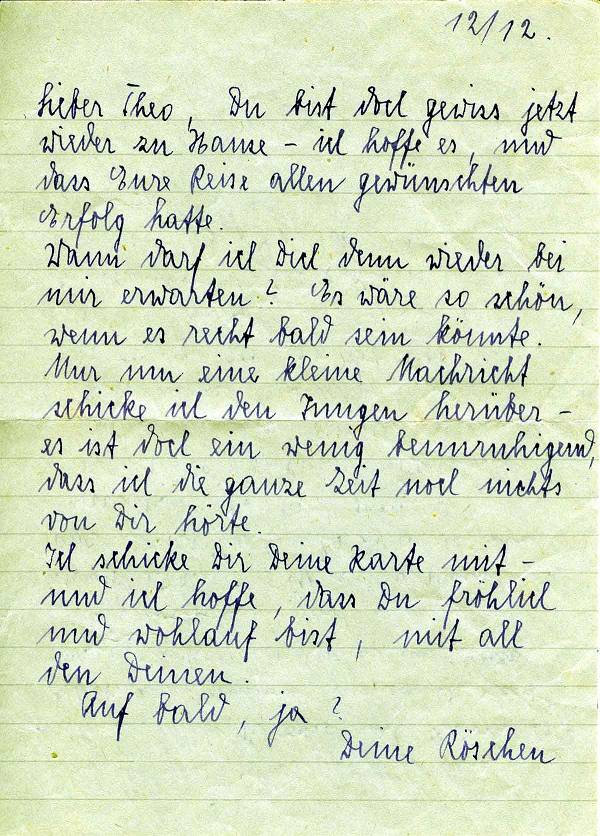 12/12.
Lieber Theo, Du bist doch gewiss jetzt
wieder zu Hause – ich hoffe es, und
dass Eure Reise allen gewünschten
Erfolg hatte.
Wann darf ich Dich denn wieder bei
mir erwarten? Es wäre so schön,
wenn es recht bald sein könnte.
Nur um eine kleine Nachricht
schicke ich den Jungen herüber –
es ist doch ein wenig beunruhigend,
dass ich die ganze Zeit noch nichts
von Dir hörte.
Ich schicke Dir Deine Karte mit –
und ich hoffe, dass Du fröhlich
und wohlauf bist, mit all
den Deinen.
Auf bald, ja?
Deine Röschen